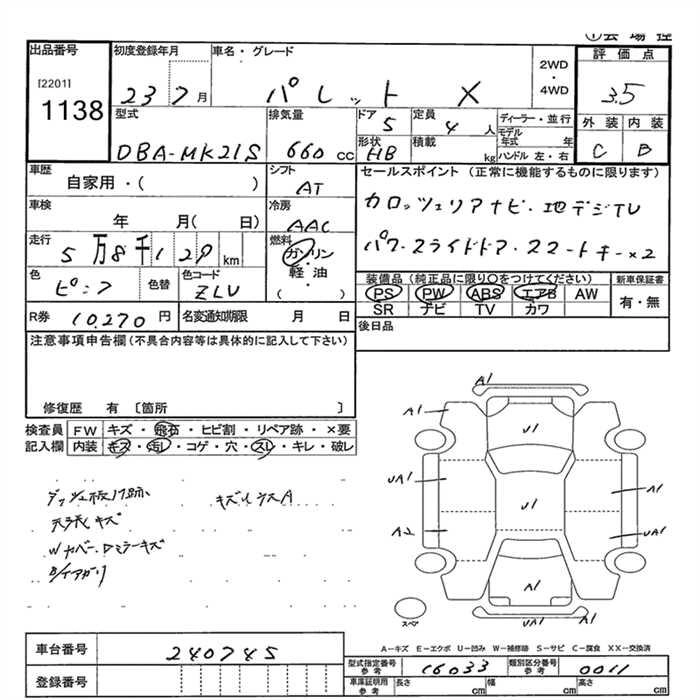 ①会場控
出品番号
[2201]
1138
初度登録年月
23 7月
車名・グレード
パレット X
2WD
・
4WD
評価点
3.5
外装 内装
C B
型式
DBA-MK21S
排気量
660 CC
ドア
5
形状
HB
定員
4 人
積載
kg
ディーラー・並行
モデル年式 年
ハンドル 左・右
車歴
自家用・( )
シフト
AT
セールスポイント (正常に機能するものに限ります)
カロッツェリアナビ・地デジTV
パワースライドドア・スマートキー×2
車検
年 月( 日)
冷房
AAC
走行
5万8千129km
燃料
ガソリン
・
軽油
・
( )
色
ピンク
色替
色コード
ZLV
装備品 (純正品に限り○をつけてください)
PS PW ABS エアB AW
SR ナビ TV カワ
新車保証書
有・無
R券 10,270 円
名変通知期限 月 日
後日品
注意事項申告欄(不具合内容等は具体的に記入して下さい)
修復歴 有 〔箇所 〕
検査員記入欄
FW キズ・飛石・ヒビ割・リペア跡・×要
内装 キズ・汚レ・コゲ・穴・スレ・キレ・破レ
ダッシュ板
天張キズ
Wカバー・Dミラーキズ
A1
A1
U1
UA1
A1
U1
A2
UA1
A1
UA1
A1
スペア
A-キズ E-エクボ U-凹み W-補修跡 S-サビ C-腐食 XX-交換済
車台番号
240745
登録番号
型式指定番号
参考
16033
類別区分番号
参考
0011
車庫証明用
参考
長さ cm
幅 cm
高さ cm